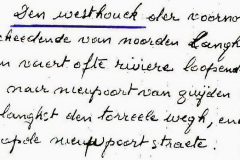 Den westhouck der voorno
cheedende van noorden langh
en vaert ofte riviere loopende
naer nieupoort van zuijden
langhst den torreele wegh, end
opde nieupoort straete: